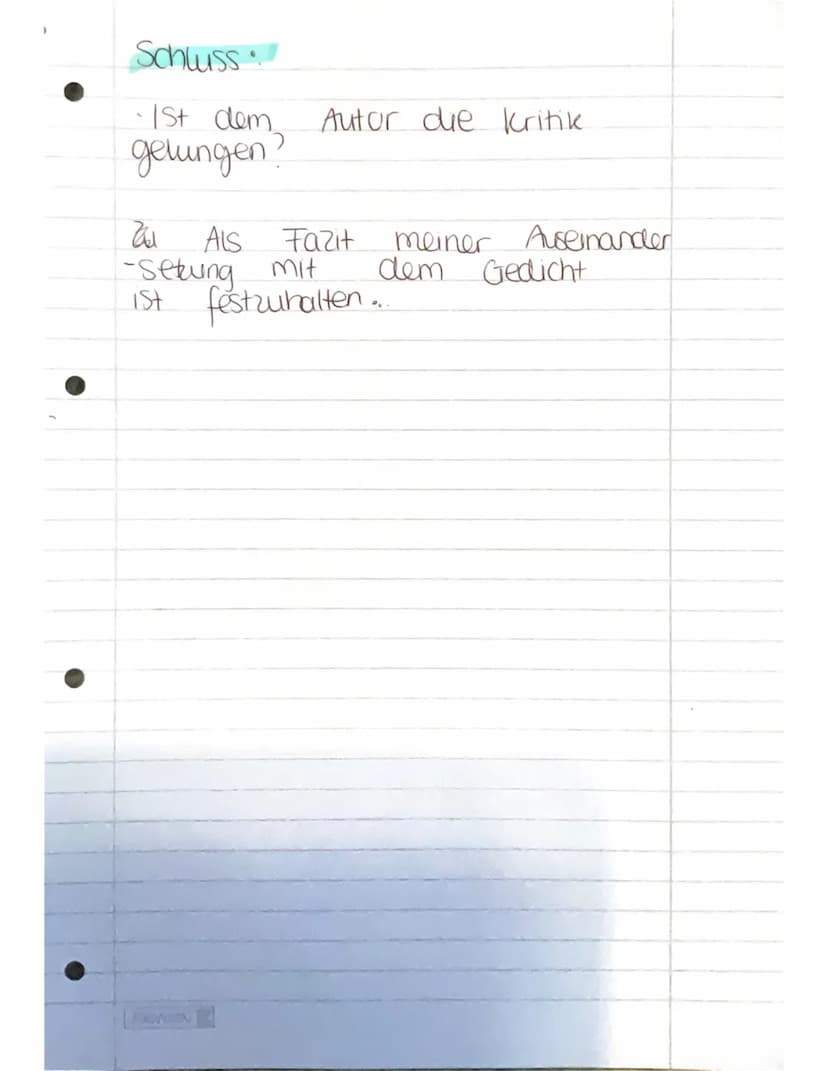 Schluss:
· Ist dem Autor die Kritik
gelungen?
Zu Als Fazit meiner Auseinander
-setzung mit dem Gedicht
ist festzuhalten...